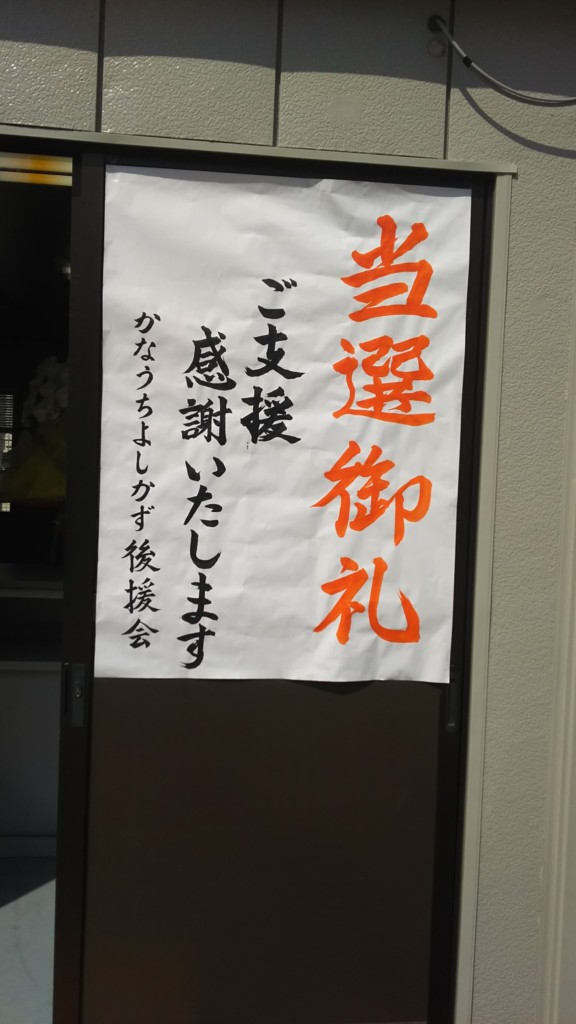 当選御礼
ご支援
感謝いたします
かなうちよしかず後援会